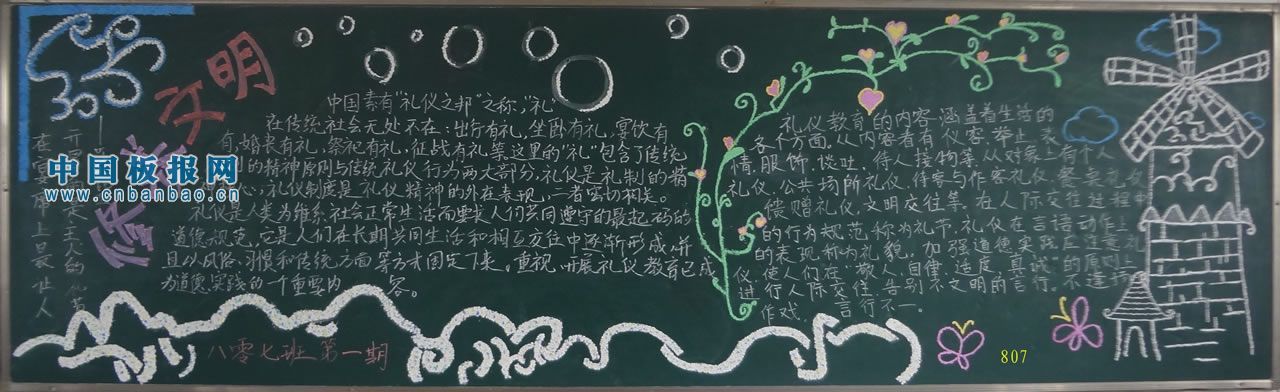 文明
中国素有"礼仪之邦"之称，"礼"
在传统社会无处不在：出行有礼，坐卧有礼，宴饮有
有，婚丧有礼，祭祀有礼，征战有礼等。这里的"礼"包含了传统
的精神原则与传统礼仪行为两大部分，礼仪是礼制的精
心，礼仪制度是礼仪精神的外在表现，二者密切相关。
礼仪是人类为维系社会正常生活而要求人们共同遵守的最起码的
道德规范，它是人们在长期共同生活和相互交往中逐渐形成，并
且以风俗、习惯和传统方面等方式固定下来，重视、开展礼仪教育已成
为道德实践的一个重要内容。
礼仪教育的内容涵盖着生活的
各个方面。从内容看有仪容、举止、表
情、服饰、谈吐、待人接物等，从对象上有个人
礼仪、公共场所礼仪、待客与作客礼仪、餐桌礼仪
馈赠礼仪、文明交往等。在人际交往过程中
的行为规范称为礼节，礼仪在言语动作上
的表现称为礼貌。加强道德实践应注意礼
仪，使人们在"敬人、自律、适度、真诚"的原则上
进行人际交往，告别不文明的言行。
作戏，言行不一。
八零七班第一期
807
中国板报网
www.cnbanbao.cn